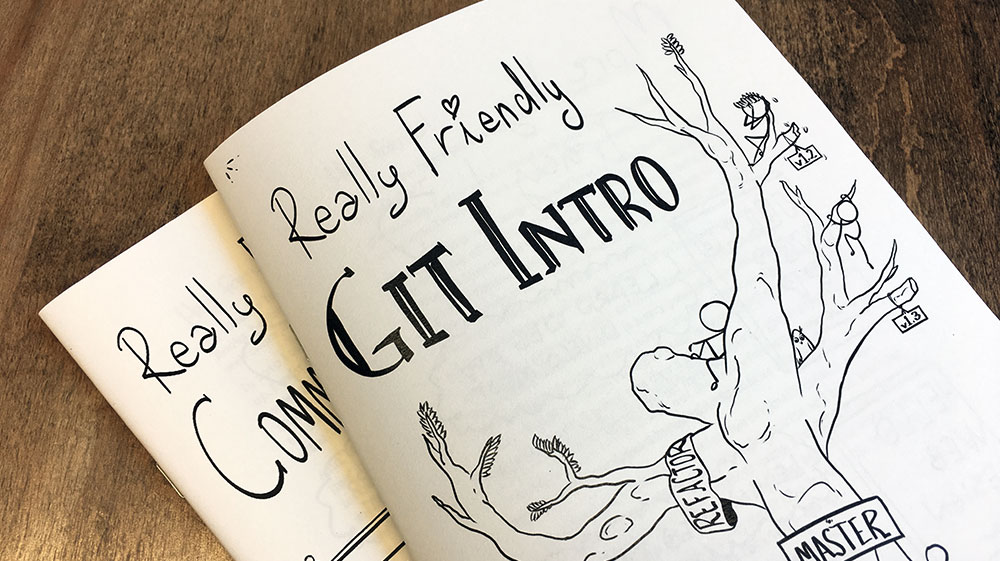 Really Friendly
GIT INTRO
v1.2
v1.3
REFACTOR
MASTER
Really